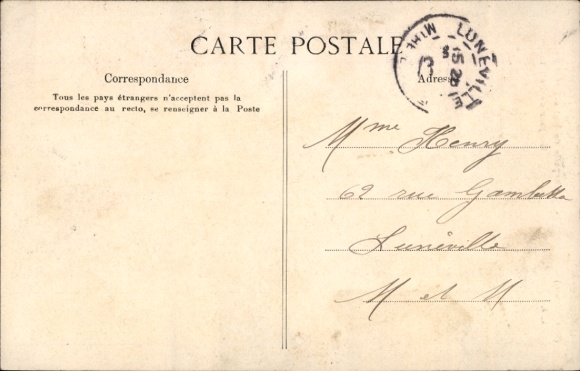 CARTE POSTALE
Correspondance
Tous les pays étrangers n'acceptent pas la
correspondance au recto, se renseigner à la Poste
LUNÉVILLE
Adresse
Mme Henry
62 rue Gambetta
Lunéville
M et M